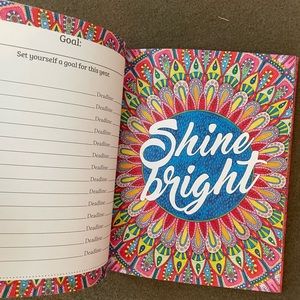 Goal:
Set yourself a goal for this year.
Deadline
Deadline
Deadline
Deadline
Deadline
Deadline
Deadline
Deadline
Deadline
Deadline
Deadline
Deadline
Deadline
Shine
bright